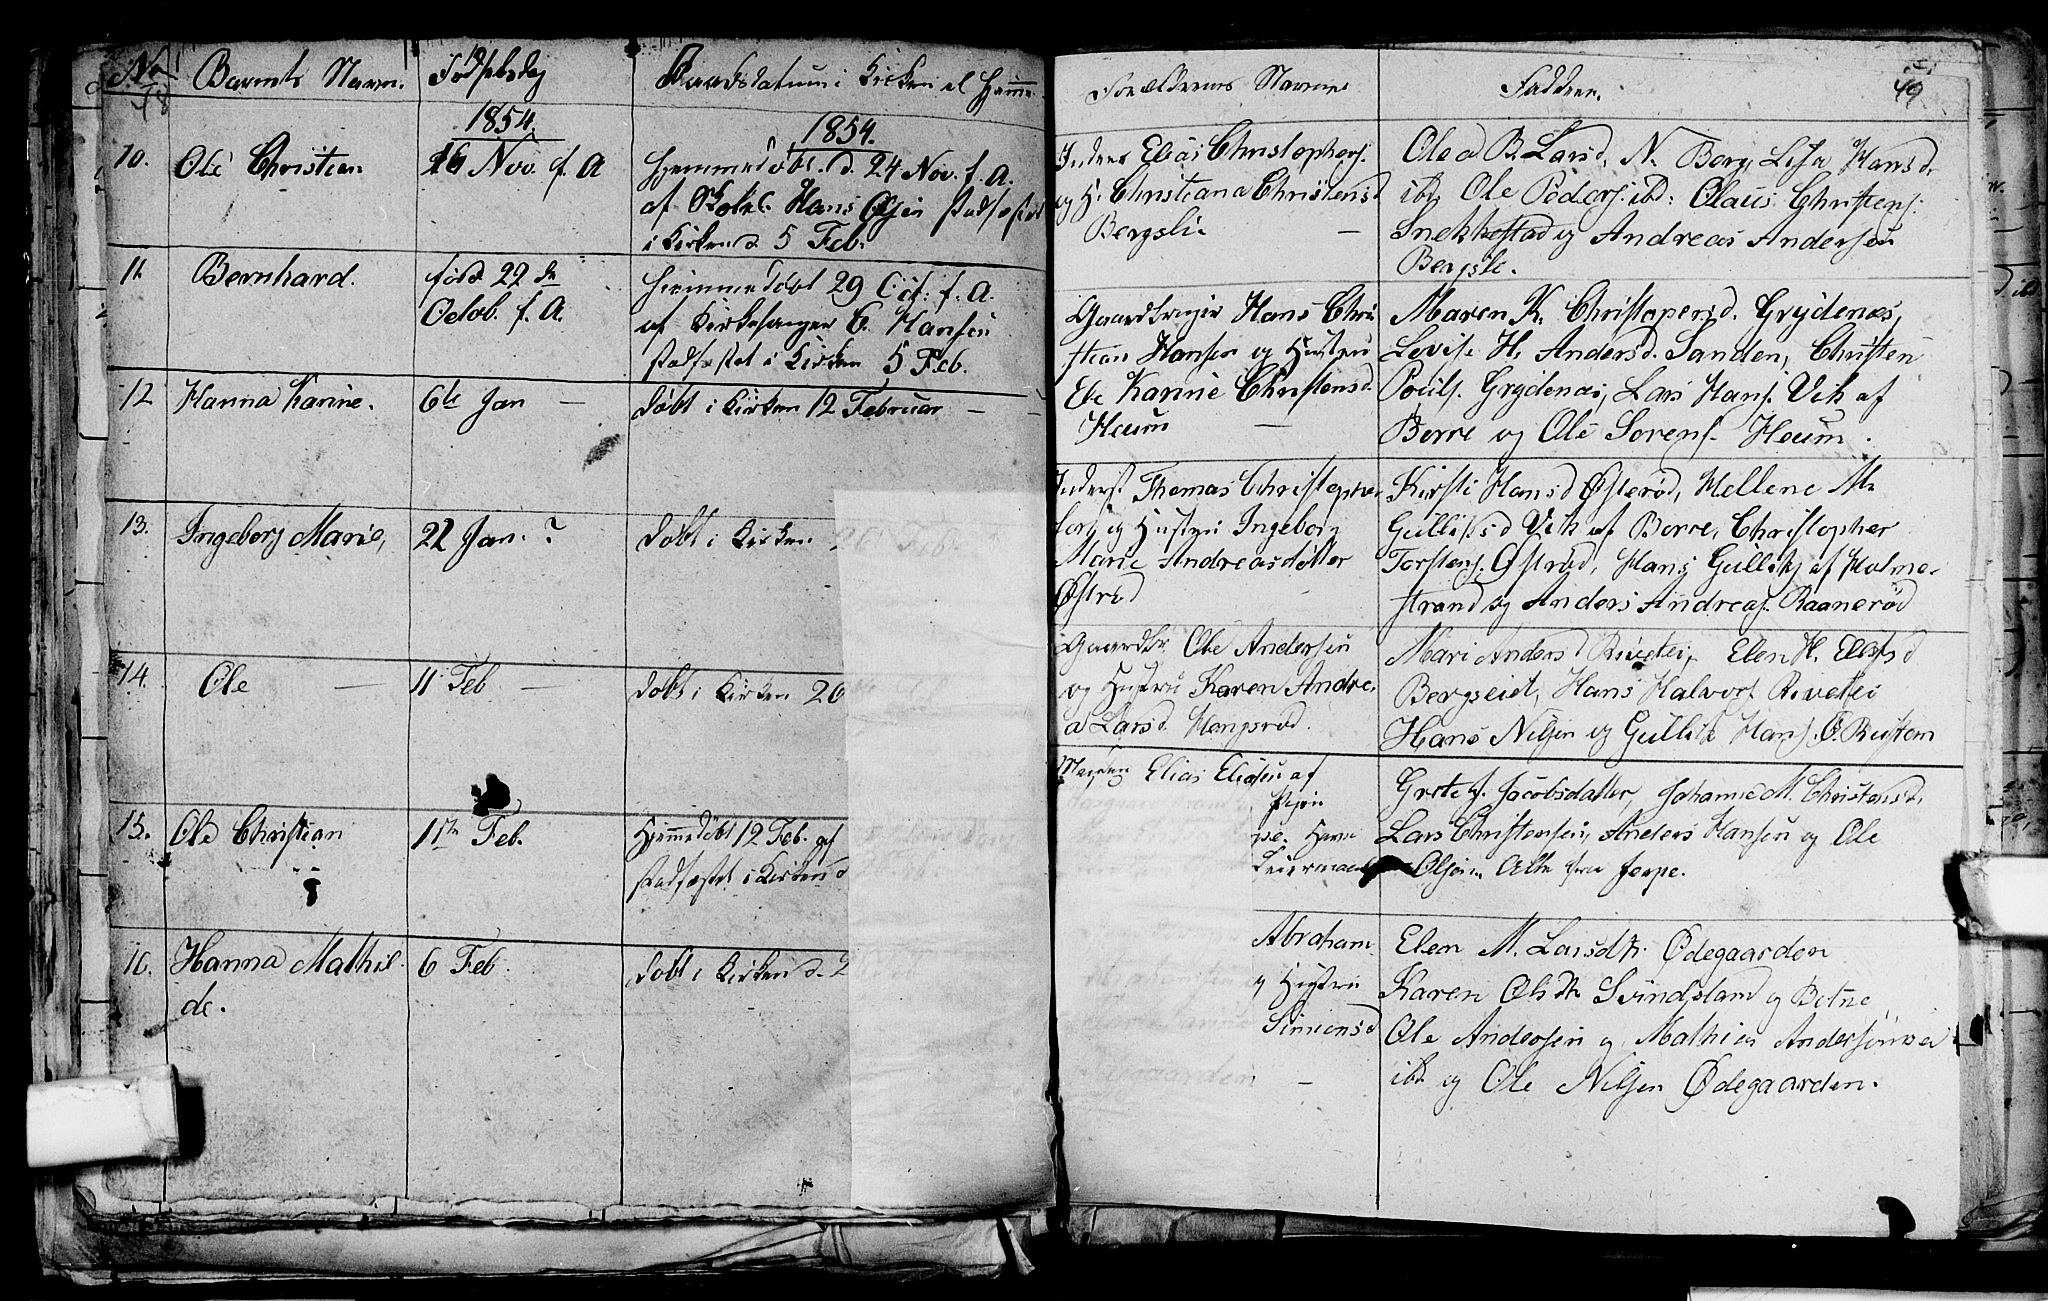 No Barnets Navn. Fødselsdag Daabsdatum i Kirken el Hjemme
48
1854. 1854.
10. Ole Christian 16 Nov. f. A Hjemmedøbt. d. 24 Nov. f. A.
af Skoleh. Hans Olsen stadfæstet
i Kirken d 5 Feb.
11. Bernhard. født 22 de Hjemmedøbt 29 Oct. f. A.
Octob. f. A. af Kirkesanger C. Hansen
stadfæstet i Kirken 5 Feb.
12 Hanna Karine. 6te Jan — døbt i Kirken 12 Februar — —
13. Ingeborg Marie, 22 Jan. ? døbt i Kirken
14. Ole — 11 Feb — døbt i Kirken 26
15. Ole Christian 11te Feb. Hjemmedøbt 12 Feb. af
stadfæstet i Kirken d
16. Hanna Mathil 6 Feb. døbt i Kirken d. 2
de.
Forældrenes Navne Faddere. 49
Inderst Elias Christophers.
og H. Christiana Christensd
Bergsli —
Olea B. Larsd, N. Berg, Lisa Hansd.
ibd, Ole Peders. ibd: Claus Christens.
Snekkestad og Andreas Andersen
Bergsli.
Gaardbruger Hans Chri
stian Hansen og Hustru
Else Karine Christensd.
Heum —
Maren K. Christopersd. Grydenæs,
Levise H. Andersd. Sanden, Christen
Pouls. Grydenæs, Lars Hans. Vik af
Borre og Ole Sorens. Heum.
Inderst Thomas Christophe
fors og Hustru Ingeborg
Marie Andreasdatter
Østrød
Kirsti Hansd Østerød, Hellene M.
Gulliksd Vik af Borre, Christopher
Torstens. Østrød, Hans Gulliks af Holme
strand og Anders Andreas. Raanerød
Gaardbr Ole Andersen
og Hustru Karen Andre
a Larsd Hengsrød.
Mari Andersd Rivetei, Elen H. Ellefsd
Bergseiet, Hans Halvors Rivetei
Hans Nilsen og Gullik Hans. Ø. Rustem
Elias Eliasen af
pe.
Leiermaal
Grete J. Jacobsdatter, Johanne M. Christensd.
Lars Christensen, Anders Hansen og Ole
Olsen, Alle fra Jerpe.
Abraham
g Hustru
Simensd
—
Elen M. Larsdtr. Ødegaarden
Karen Olsdtr Svindsland og Berthe
Ole Andersen og Mathias Andersønner
ibd og Ole Nilsen Ødegaarden.